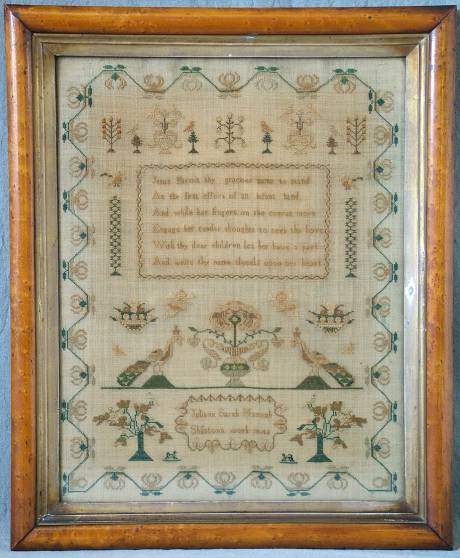 Jesus Permit thy gracious name to stand
As the first efforts of an infant hand
And while her fingers on the canvas move
Engage her tender thoughts to seek thy love
With thy dear children let her have a part
And write thy name thyself upon her heart
Juliana Sarah Hannah
work